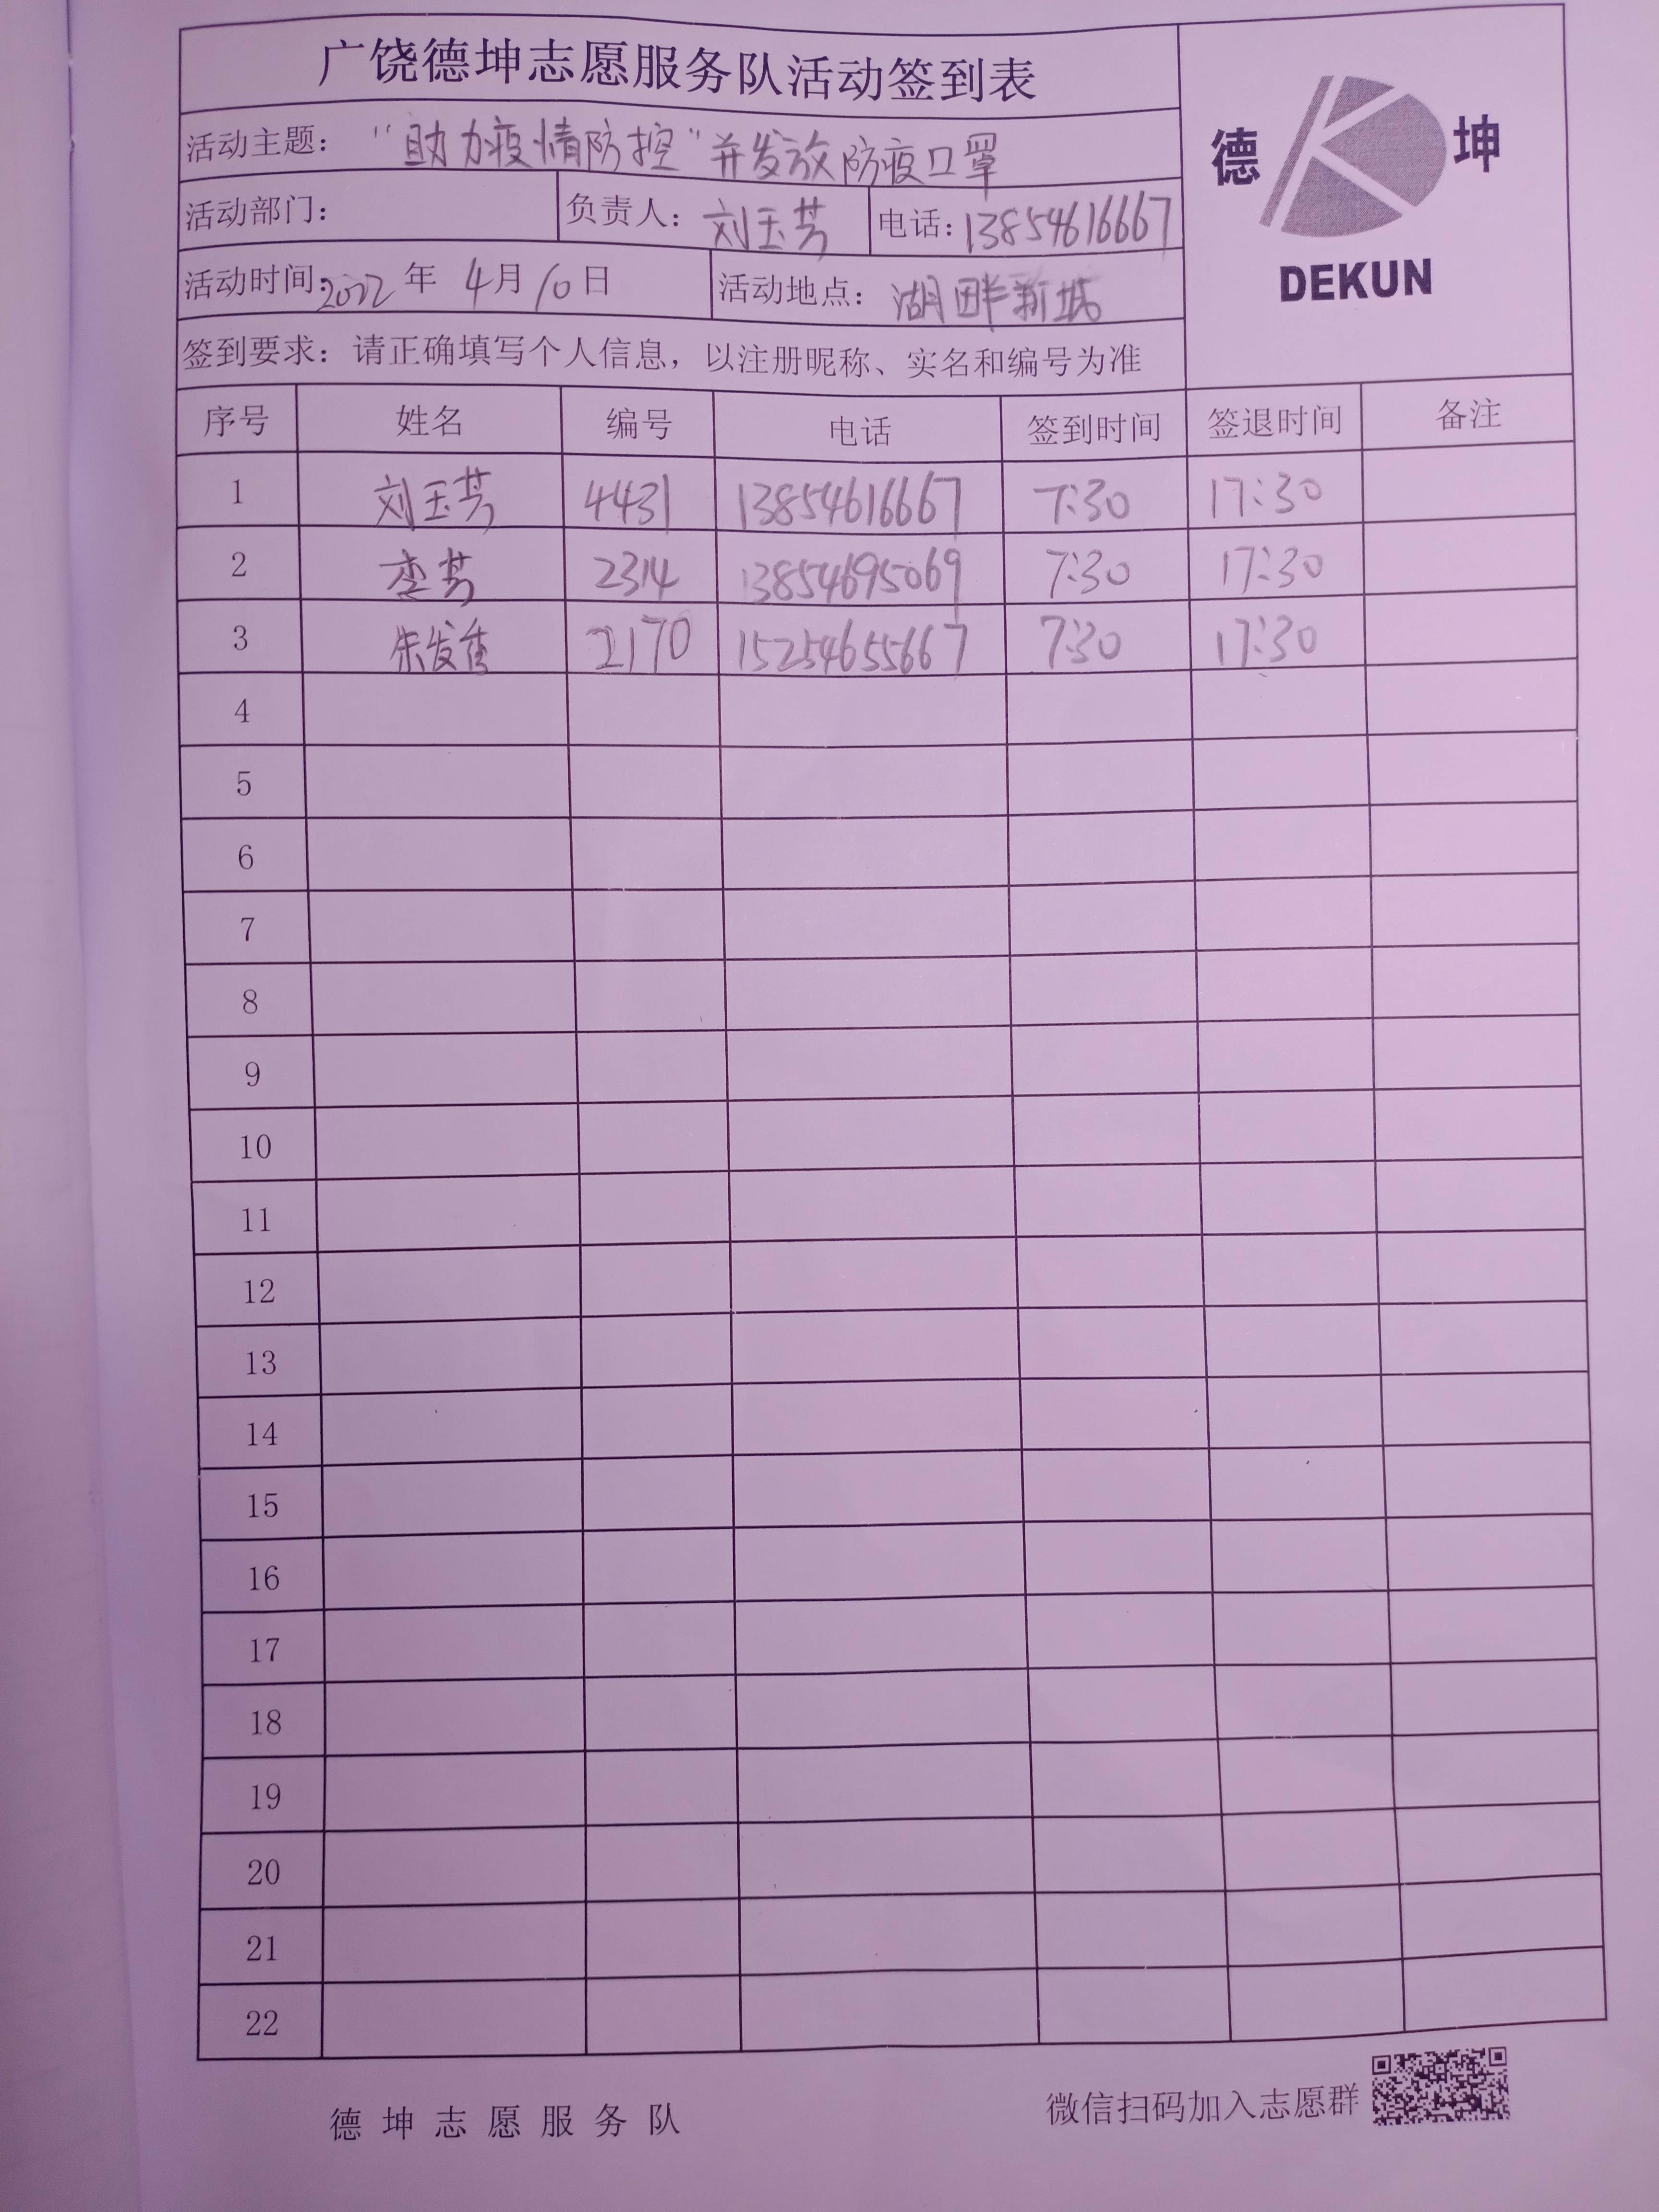 广饶德坤志愿服务队活动签到表
活动主题: "助力疫情防控"并发放防疫口罩
德 坤
活动部门: 负责人: 刘玉芳 电话: 13854616667
DEKUN
活动时间: 2022 年 4月 10 日 活动地点: 湖畔新城
签到要求: 请正确填写个人信息, 以注册昵称、实名和编号为准
序号 姓名 编号 电话 签到时间 签退时间 备注
1 刘玉芳 4431 13854616667 7:30 17:30
2 李芳 2314 13854695069 7:30 17:30
3 朱发香 2170 15254655667 7:30 17:30
4
5
6
7
8
9
10
11
12
13
14
15
16
17
18
19
20
21
22
德坤志愿服务队 微信扫码加入志愿群